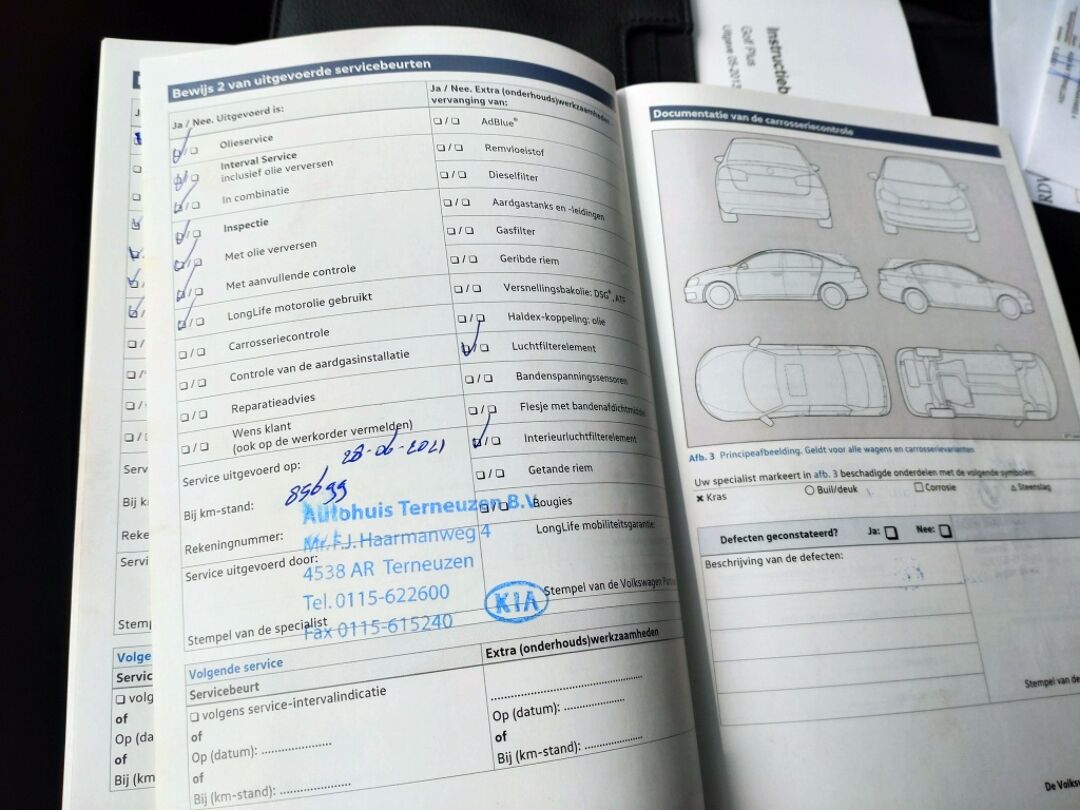 Instructieb
Golf Plus
Uitgave 05-2013
RDW
Bewijs 2 van uitgevoerde servicebeurten
Ja / Nee. Uitgevoerd is:
Olieservice
Interval Service
inclusief olie verversen
In combinatie
Inspectie
Met olie verversen
Met aanvullende controle
LongLife motorolie gebruikt
Carrosseriecontrole
Controle van de aardgasinstallatie
Reparatieadvies
Wens klant
(ook op de werkorder vermelden)
Service uitgevoerd op: 28-06-2021
Bij km-stand: 85699
Rekeningnummer:
Service uitgevoerd door:
Stempel van de specialist
Autohuis Terneuzen B.V.
Mr. F.J. Haarmanweg 4
4538 AR Terneuzen
Tel. 0115-622600
Fax 0115-615240
KIA
Ja / Nee. Extra (onderhouds)werkzaamheden
vervanging van:
AdBlue®
Remvloeistof
Dieselfilter
Aardgastanks en -leidingen
Gasfilter
Geribde riem
Versnellingsbakolie: DSG®, ATF
Haldex-koppeling: olie
Luchtfilterelement
Bandenspanningssensoren
Flesje met bandenafdichtmiddel
Interieurluchtfilterelement
Getande riem
Bougies
LongLife mobiliteitsgarantie:
Stempel van de Volkswagen
Volgende service
Servicebeurt
volgens service-intervalindicatie
of
Op (datum): ....................
of
Bij (km-stand): ....................
Extra (onderhouds)werkzaamheden
........................................
Op (datum): ..................
of
Bij (km-stand): ..................
Documentatie van de carrosseriecontrole
Afb. 3 Principeafbeelding. Geldt voor alle wagens en carrosserievarianten
Uw specialist markeert in afb. 3 beschadigde onderdelen met de volgende symbolen:
Kras Buil/deuk Corrosie Steenslag
Defecten geconstateerd? Ja: Nee:
Beschrijving van de defecten:
Stempel van de
De Volks
Serv
Bij k
Reke
Servi
Stemp
Volge
Servic
volg
of
Op (da
of
Bij (km